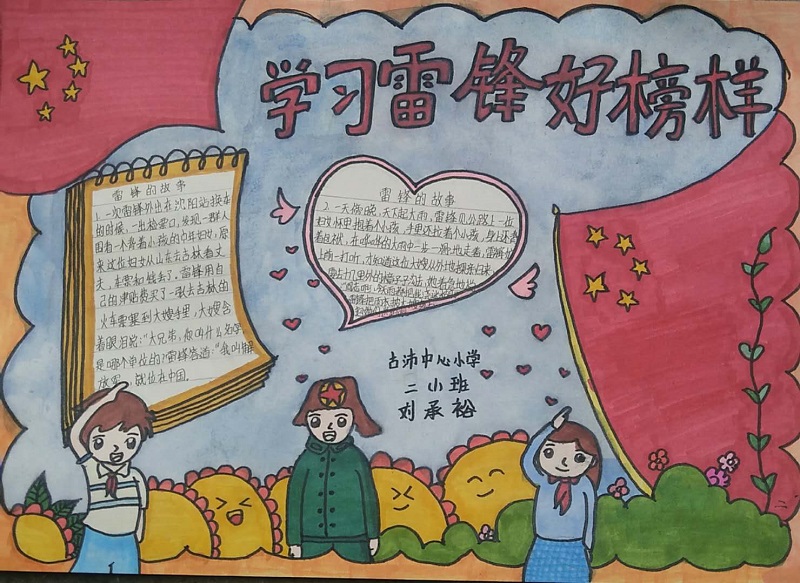 学习雷锋好榜样
雷锋的故事
1、一次雷锋外出在沈阳站换车
的时候,一出检票口,发现一群人
围着一个背着小孩的中年妇女,原
来这位妇女从山东去吉林看丈
夫,车票和钱丢了。雷锋用自
己的津贴费买了一张去吉林的
火车票塞到大嫂手里,大嫂含
着眼泪说:“大兄弟,你叫什么名字,
是哪个单位的?”雷锋答道:“我叫解
放军,就住在中国。
雷锋的故事
2、一天傍晚,天下起大雨,雷锋见公路上一位
妇女怀里抱着小孩,手里还拉着个小孩,身上还背
着包袱,在哗哗的大雨中一步一滑地走着,雷锋
上前一打听,才知道这位大嫂从外地探亲归来,
要去十几里外的樟子沟
古沛中心小学
二小班
刘承裕